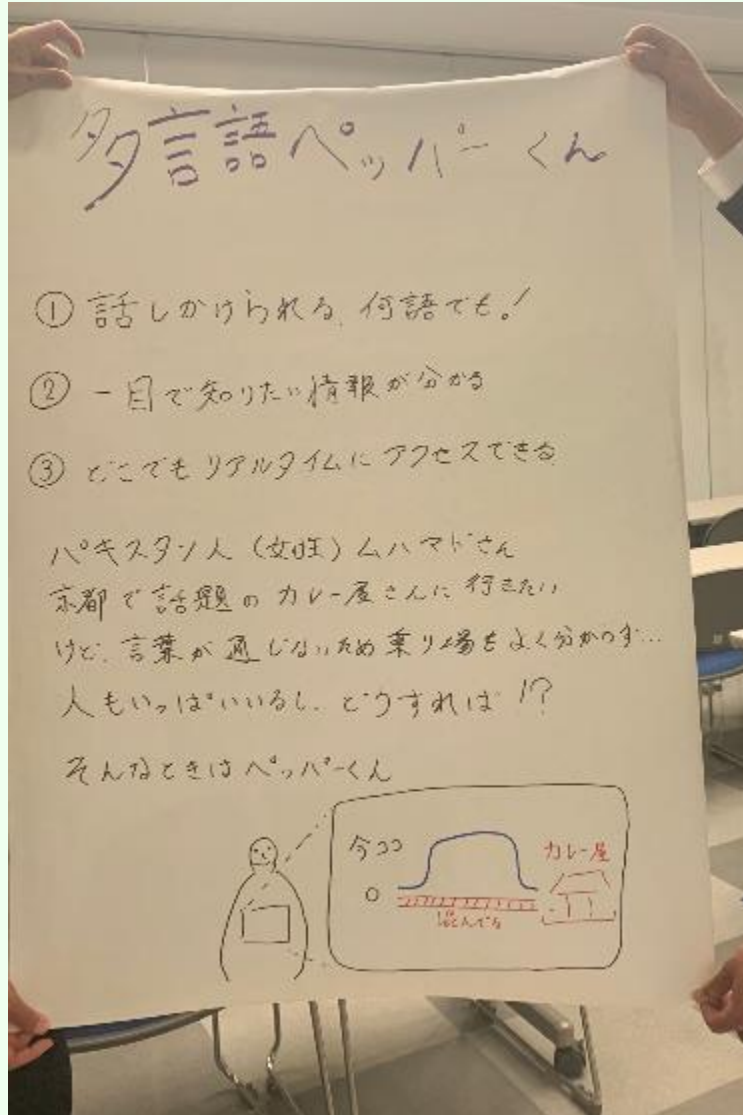 多言語ペッパーくん
① 話しかけられる、何語でも!
② 一目で知りたい情報が分かる
③ どこでもリアルタイムにアクセスできる
パキスタン人(女性)ムハマドさん
京都で話題のカレー屋さんに行きたい
けど、言葉が通じないため乗り場もよく分からず…
人もいっぱいいるし、どうすれば!?
そんなときはペッパーくん
今ココ
カレー屋
混んでる